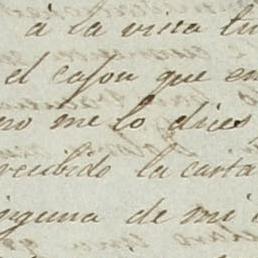 à la vista tu
el cajon que en
no me lo dices
recibido la carta
inguna de mi